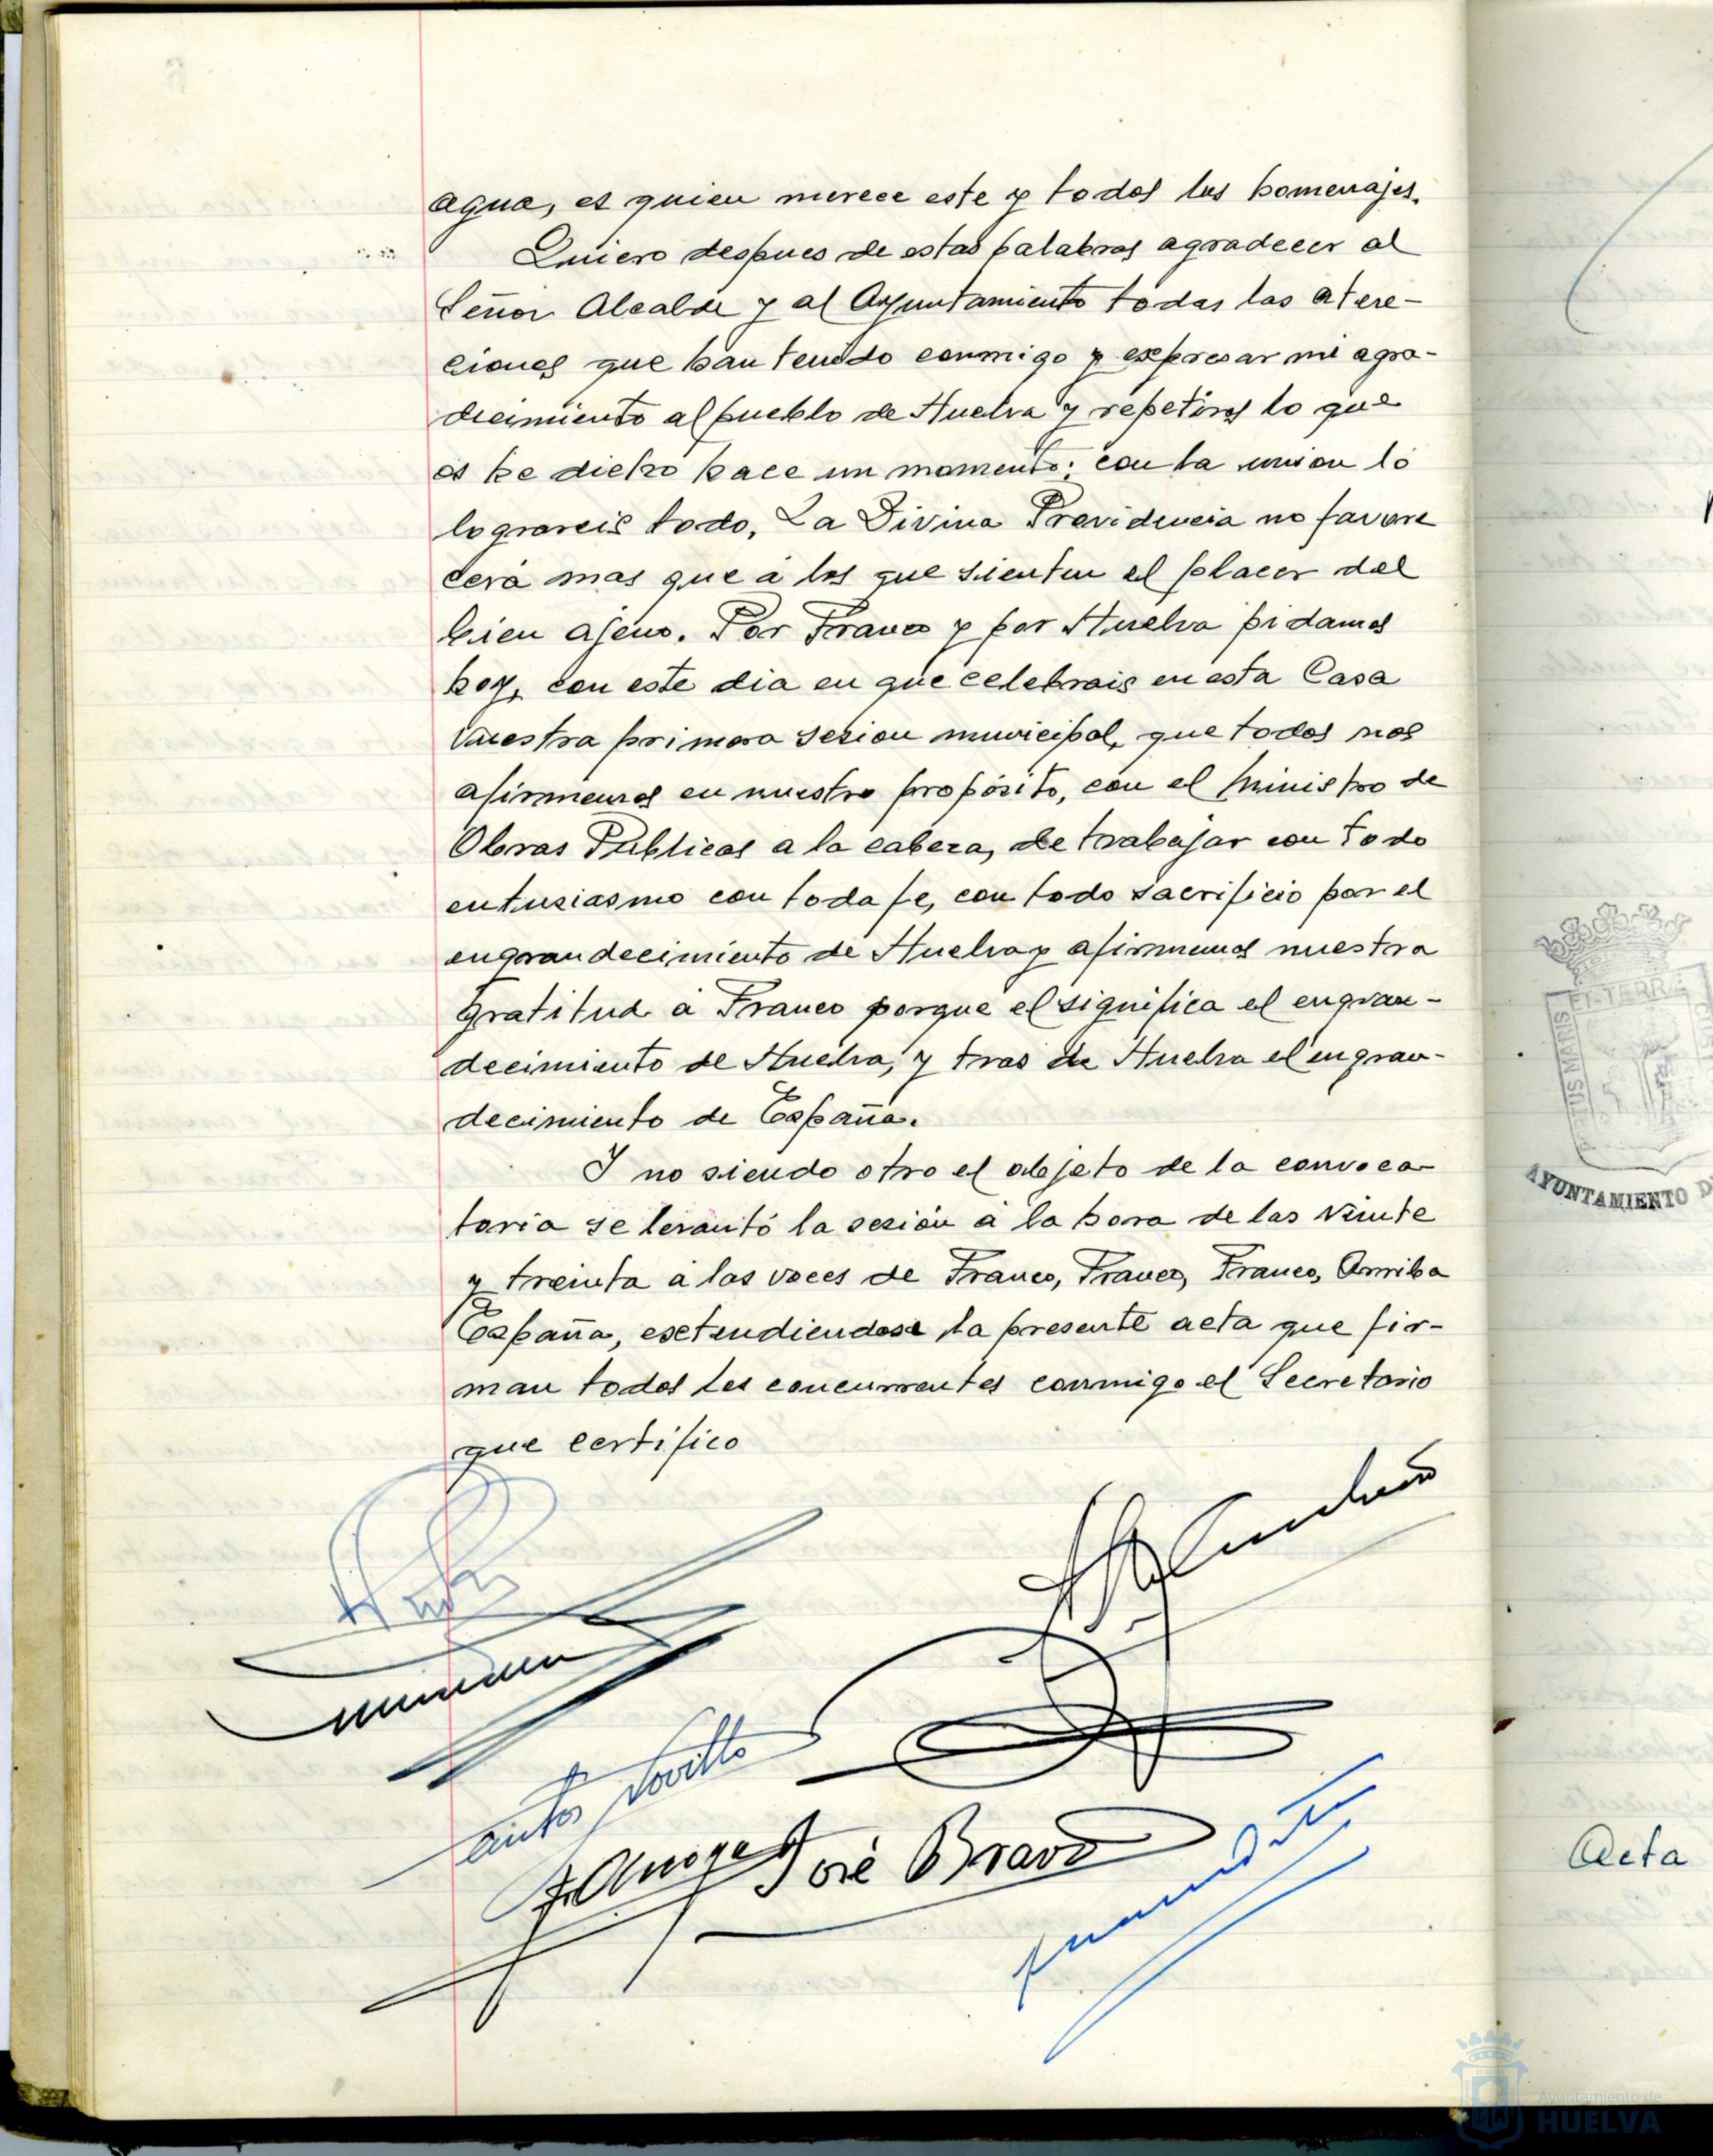 agua, es quien merece este y todos los homenajes.
Quiero despues de estas palabras agradecer al
Señor Alcalde y al Ayuntamiento todas las aten-
ciones que han tenido conmigo y expresar mi agra-
decimiento al pueblo de Huelva y repetiros lo que
os he dicho hace un momento: con la union lo
lograreis todo. La Divina Providencia no favore
cerá mas que á los que sienten el placer del
bien ajeno. Por Franco y por Huelva pidamos
hoy, con este dia en que celebrais en esta Casa
Vuestra primera sesion municipal, que todos nos
afirmemos en nuestro propósito, con el Ministro de
Obras Publicas a la cabeza, de trabajar con todo
entusiasmo con toda fe, con todo sacrificio por el
engrandecimiento de Huelva y afirmemos nuestra
gratitud á Franco porque el significa el engran-
decimiento de Huelva, y tras de Huelva el engran-
decimiento de España.
Y no siendo otro el objeto de la convoca-
toria se levantó la sesión á la hora de las veinte
y treinta á las voces de Franco, Franco, Franco, Arriba
España, extendiendose la presente acta que fir-
man todos los concurrentes conmigo el Secretario
que certifico
José Bravo
ET TERRÆ
AYUNTAMIENTO D
Acta
Ayuntamiento de
HUELVA